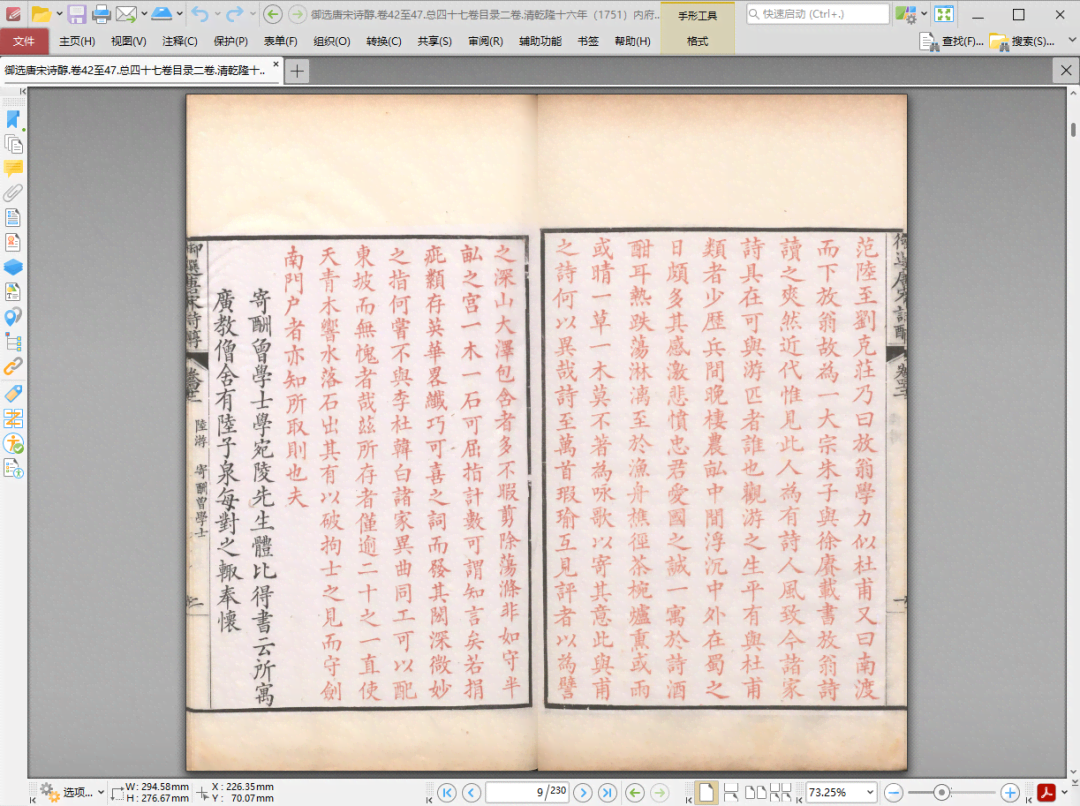 御选唐宋诗醇.卷42至47.总四十七卷目录二卷.清乾隆十六年（1751）内府..
手形工具
快速启动 (Ctrl+.)
文件
主页(H)
视图(V)
注释(C)
保护(P)
表单(F)
组织(O)
转换(C)
共享(S)
审阅(R)
辅助功能
书签
帮助(H)
格式
查找(F)...
搜索(S)...
御选唐宋诗醇.卷42至47.总四十七卷目录二卷.清乾隆十..
范陸至劉克莊乃曰放翁學力似杜甫又曰南渡
而下放翁故為一大宗朱子與徐賡載書放翁詩
讀之爽然近代惟見此人為有詩人風致今諸家
詩具在可與游匹者誰也觀游之生平有與杜甫
類者少歷兵間晚棲農畝中間浮沉中外在蜀之
日頗多其感激悲憤忠君愛國之誠一寓於詩酒
酣耳熱跌蕩淋漓至於漁舟樵徑茶椀爐熏或雨
或晴一草一木莫不著為咏歌以寄其意此與甫
之詩何以異哉詩至萬首瑕瑜互見評者以為譬
之深山大澤包含者多不暇剪除蕩滌非如守半
畝之宮一木一石可屈指計數可謂知言矣若捐
疵纇存英華畧纖巧可喜之詞而發其閎深微妙
之指何嘗不與李杜韓白諸家異曲同工可以配
東坡而無愧者哉茲所存者僅逾二十之一直使
天青木響水落石出其有以破拘士之見而守劍
南門戶者亦知所取則也夫
寄酬曾學士學宛陵先生體比得書云所寓
廣教僧舍有陸子泉每對之輒奉懷
陸游 寄酬曾學士
御選唐宋詩醇
选项...
W: 294.58mm
H: 276.67mm
X: 226.35mm
Y: 70.07mm
9/230
73.25%